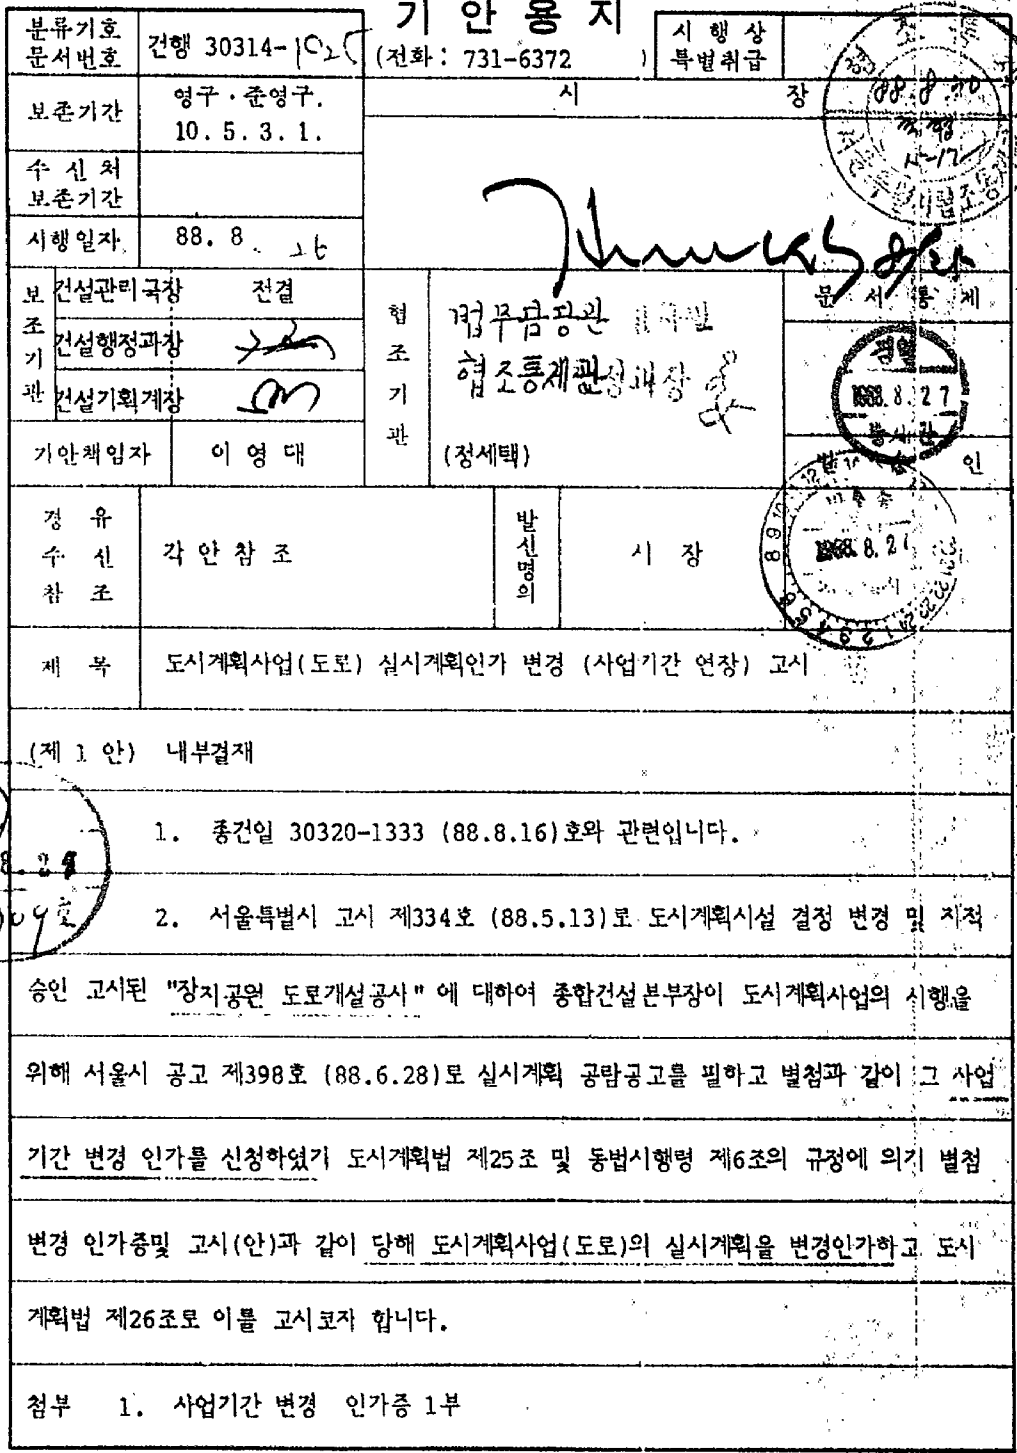 기안용지
분류기호
문서번호
건행 30314-1025
(전화: 731-6372 )
시행상
특별취급
보존기간
영구·준영구.
10. 5. 3. 1.
시 장
88.8.20
수신처
보존기간
시행일자
88. 8. 26
보조기관
건설관리국장 전결
건설행정과장
건설기획계장
협조기관
법무담당관
협조통제관
(정세택)
문서통제
검열
1988. 8. 27
통제관
기안책임자
이영대
발송인
1988. 8. 27
경유
수신
참조
각안참조
발신명의
시 장
제 목
도시계획사업(도로) 실시계획인가 변경 (사업기간 연장) 고시
(제 1 안) 내부결재
1. 종건일 30320-1333 (88.8.16)호와 관련입니다.
2. 서울특별시 고시 제334호 (88.5.13)로 도시계획시설 결정 변경 및 지적
승인 고시된 "장지공원 도로개설공사" 에 대하여 종합건설본부장이 도시계획사업의 시행을
위해 서울시 공고 제398호 (88.6.28)로 실시계획 공람공고를 필하고 별첨과 같이 그 사업
기간 변경 인가를 신청하였기 도시계획법 제25조 및 동법시행령 제6조의 규정에 의기 별첨
변경 인가증및 고시(안)과 같이 당해 도시계획사업(도로)의 실시계획을 변경인가하고 도시
계획법 제26조로 이를 고시코자 합니다.
첨부 1. 사업기간 변경 인가증 1부